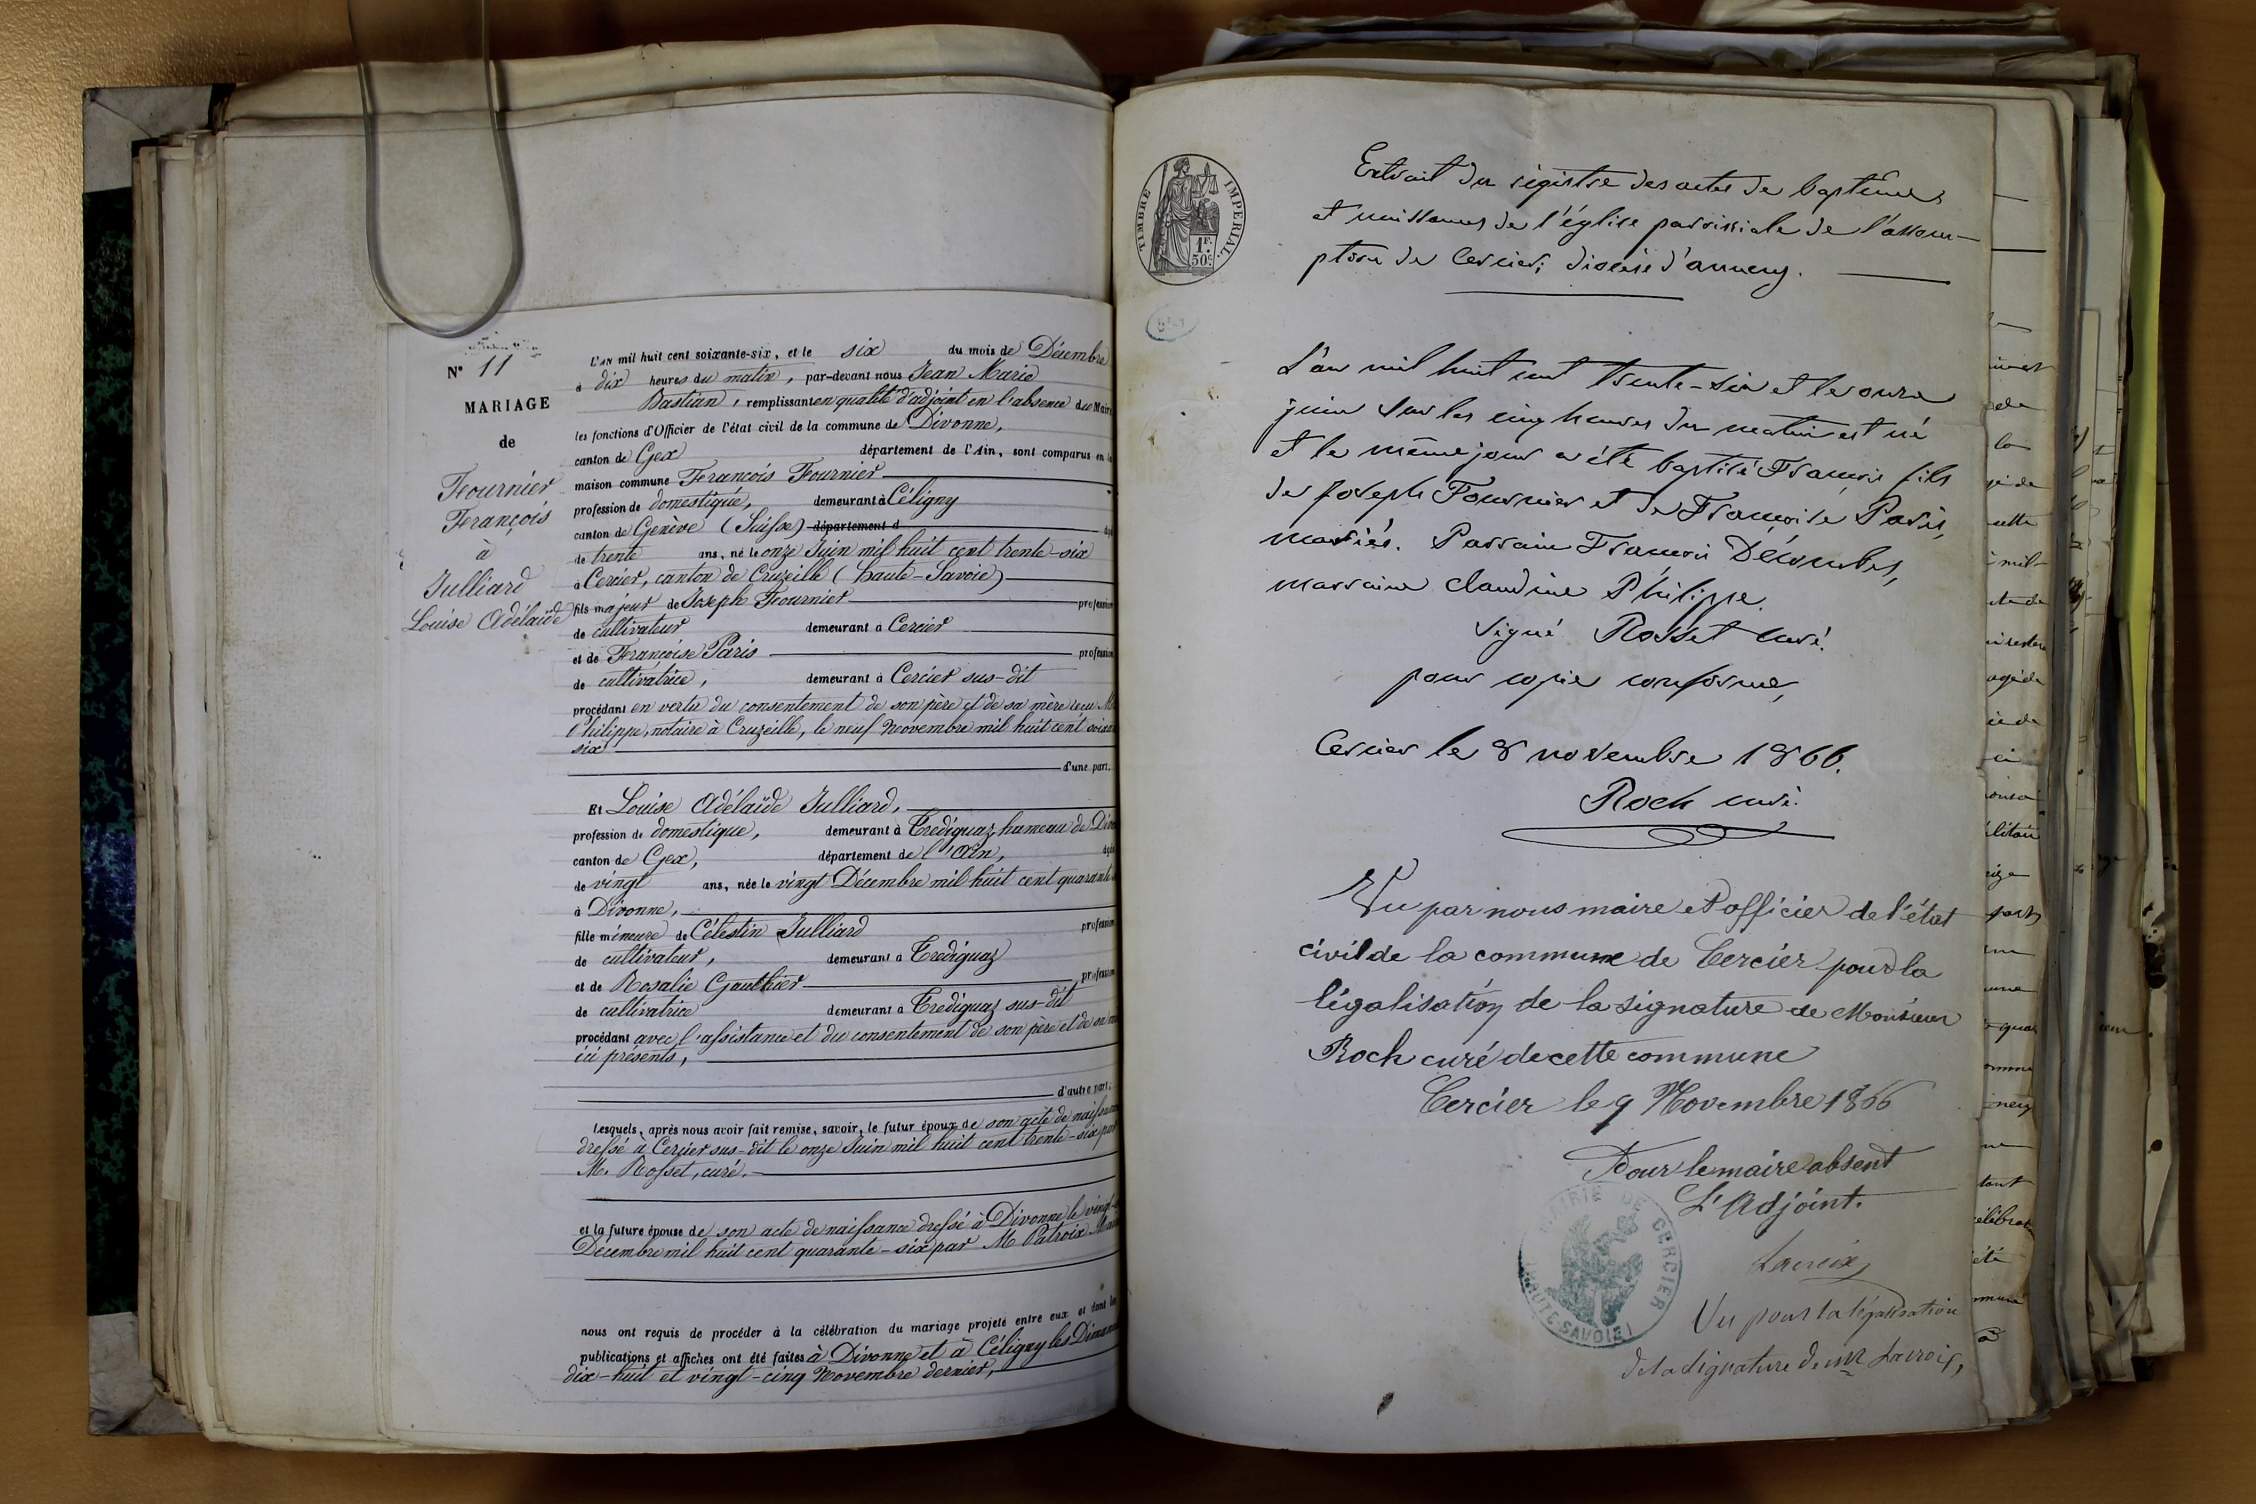 N° 11
MARIAGE
de
Fournier
François
à
Julliard
Louise Adélaïde
L'AN mil huit cent soixante-six, et le six du mois de Décembre
à dix heures du matin, par-devant nous Jean Marie
Bastian, remplissant en qualité d'adjoint en l'absence du Maire
les fonctions d'Officier de l'état civil de la commune de Divonne,
canton de Gex département de l'Ain, sont comparus en la
maison commune François Fournier
profession de domestique, demeurant à Céligny
canton de Genève (Suisse) département d
de trente ans, né le onze Juin mil huit cent trente-six
à Cercier, canton de Cruzeille (haute-Savoie)
fils majeur de Joseph Fournier profession
de cultivateur demeurant à Cercier
et de Françoise Pâris profession
de cultivatrice, demeurant à Cercier sus-dit
procédant en vertu du consentement de son père et de sa mère reçu Me
Philippe, notaire à Cruzeille, le neuf Novembre mil huit cent soixante
six
d'une part.
Et Louise Adélaïde Julliard,
profession de domestique, demeurant à Trediguaz hameau de Divo
canton de Gex, département de l'Ain,
de vingt ans, née le vingt Décembre mil huit cent quarante
à Divonne,
fille mineure de Célestin Julliard profession
de cultivateur, demeurant à Trediguaz
et de Rosalie Gauthier profession
de cultivatrice demeurant à Trediguaz sus-dit
procédant avec l'assistance et du consentement de son père et de sa
ici présents,
d'autre part.
Lesquels, après nous avoir fait remise, savoir, le futur époux de son acte de naissance
dressé à Cercier sus-dit le onze Juin mil huit cent trente-six par
M. Rosset, curé.
et la future épouse de son acte de naissance dressé à Divonne le vingt
Décembre mil huit cent quarante-six par M Patroix
nous ont requis de procéder à la célébration du mariage projeté entre eux et dont les
publications et affiches ont été faites à Divonne et à Céligny les Diman
dix-huit et vingt-cinq Novembre dernier,
TIMBRE IMPÉRIAL.
1F.
50c
Extrait du régistre des actes de baptêmes
et naissances de l'église paroissiale de l'assom-
ption de Cercier; diocèse d'annecy.
L'an mil huit cent trente-six et le onze
juin sur les cinq heures du matin est né
et le même jour a été baptisé François fils
de Joseph Fournier et de Françoise Paris,
mariés. Parrain François Décombes,
marraine claudine Philippe.
signé Rosset curé.
pour copie conforme,
Cercier le 8 novembre 1866.
Roch curé.
Vu par nous maire et officier de l'état
civil de la commune de Cercier pour la
légalisation de la signature de Monsieur
Roch curé de cette commune
Cercier le 9 Novembre 1866
Pour le maire absent
L'Adjoint.
Lacroix
MAIRIE DE CERCIER
(HAUTE-SAVOIE)
Vu pour la légalisation
de la signature de Mr Lacroix,